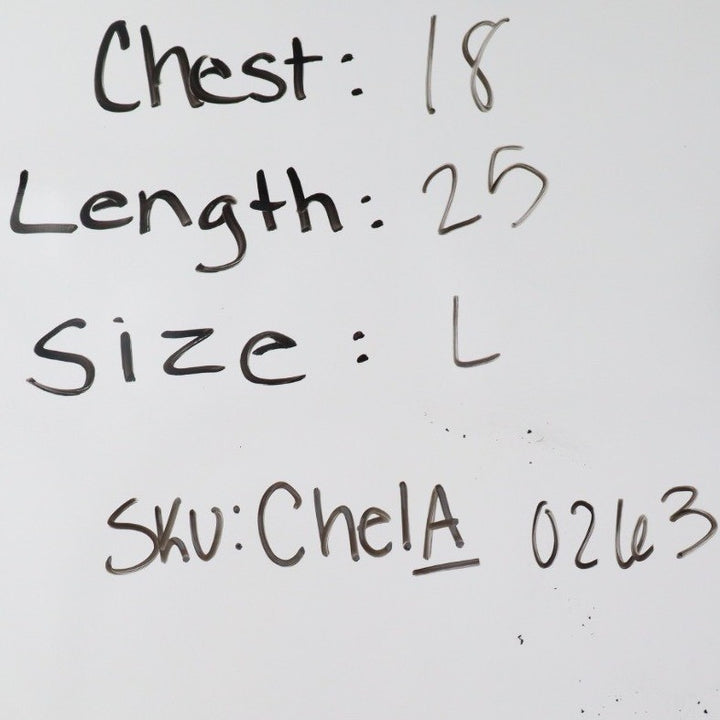 Chest: 18
Length: 25
Size: L
SKU: ChelA 0263